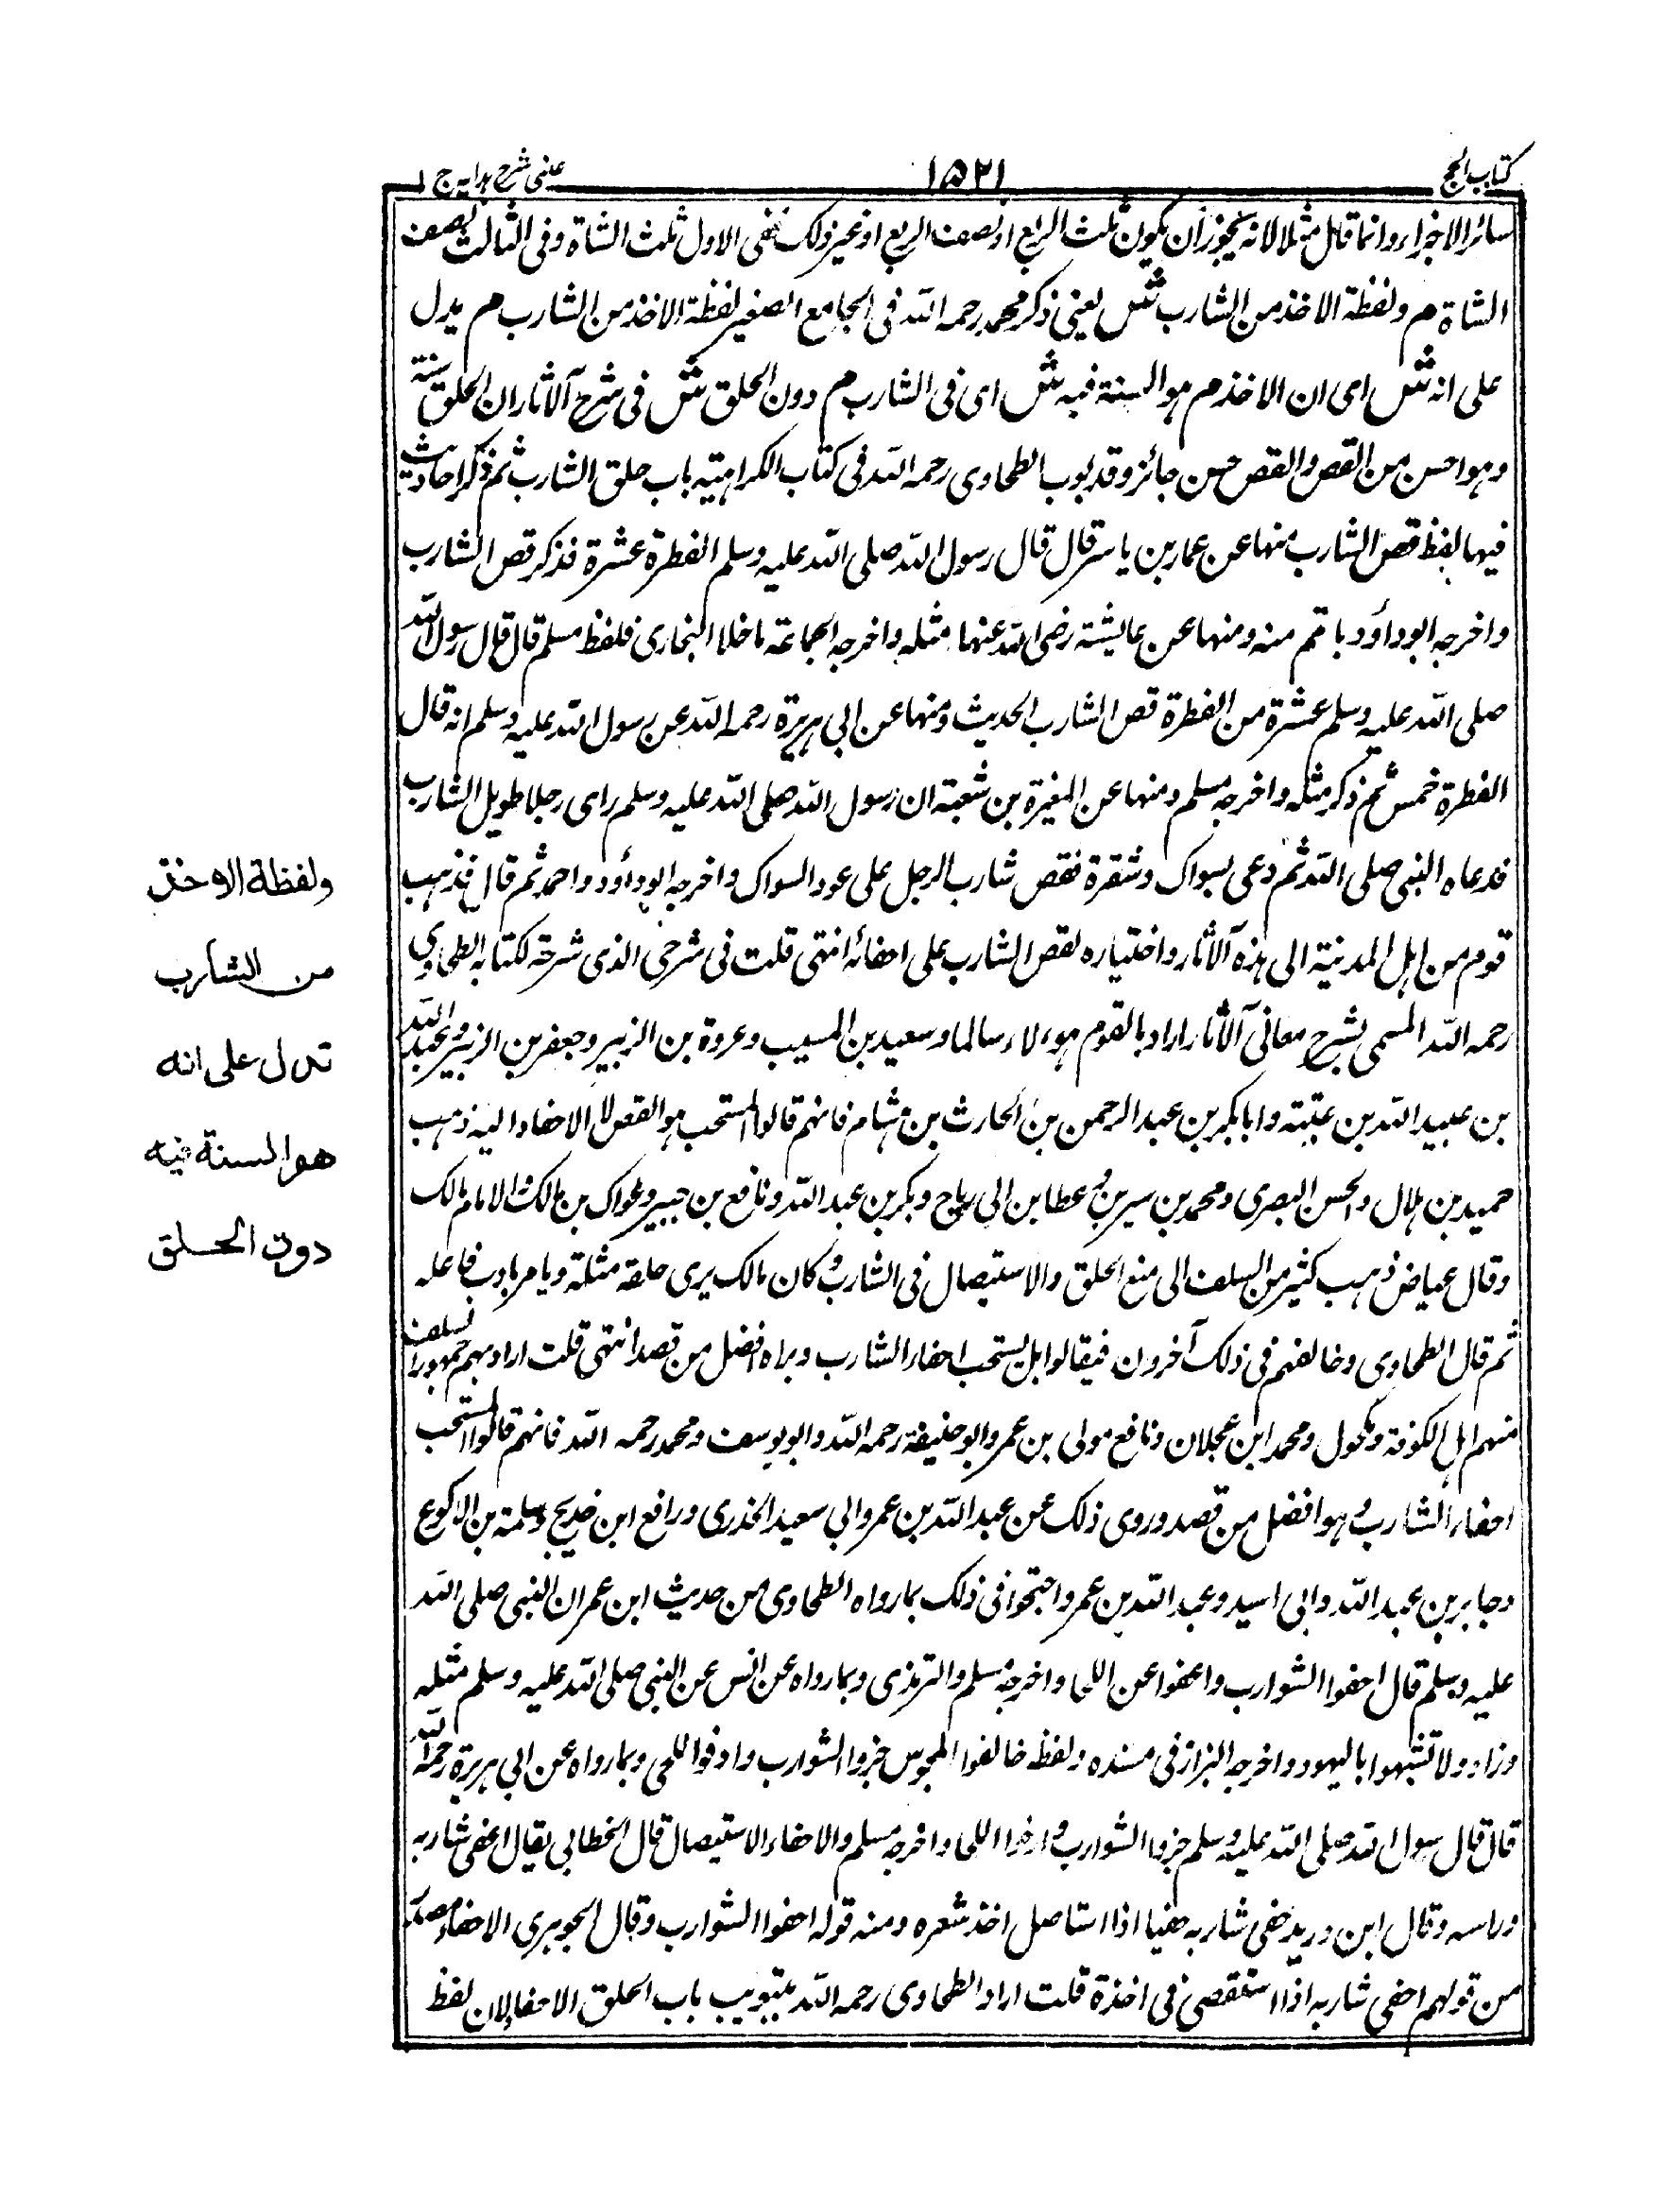 كتاب الحج
١٥٢١
عينى شرح هدايه ج ١
سائر الاجزاء وانما قال مثلا لانه يجوز ان يكون ثلث الربع او نصف الربع او غير ذلك ففى الاول ثلث الشاة وفى الثالث نصف
الشاة م ولفظة الاخذ من الشارب ش يعنى ذكر محمد رحمه الله فى الجامع الصغير لفظة الاخذ من الشارب م يدل
على انه ش اى ان الاخذ م هو السنة فيه ش اى فى الشارب م دون الحلق ش فى شرح الآثار ان الحلق سنة
وهو احسن من القص والقص حسن جائز وقد بوب الطحاوى رحمه الله فى كتاب الكراهية باب حلق الشارب ثم ذكر احاديث
فيها لفظ قص الشارب منها عن عمار بن ياسر قال قال رسول الله صلى الله عليه وسلم الفطرة عشرة فذكر قص الشارب
واخرجه ابو داؤد باتم منه ومنها عن عايشة رضى الله عنها مثله واخرجه الجماعة ما خلا البخارى فلفظ مسلم قال قال رسول الله
صلى الله عليه وسلم عشرة من الفطرة قص الشارب الحديث ومنها عن ابى هريرة رحمه الله عن رسول الله عليه وسلم انه قال
الفطرة خمس ثم ذكر مثله واخرجه مسلم ومنها عن المغيرة بن شعبة ان رسول الله صلى الله عليه وسلم راى رجلا طويل الشارب
فدعاه النبى صلى الله ثم دعى بسواك وشفرة فقص شارب الرجل على عود السواك واخرجه ابو داؤد واحمد ثم قال فذهب
قوم من اهل المدينة الى هذه الآثار واختياره لقص الشارب على احفائه انتهى قلت فى شرحى الذى شرحته لكتابه الطحاوى
رحمه الله المسمى بشرح معانى الآثار اراد بالقوم هؤلاء سالما وسعيد بن المسيب وعروة بن الزبير وجعفر بن الزبير وعبيد الله
بن عبيد الله بن عتبة وابا بكر بن عبد الرحمن بن الحارث بن هشام فانهم قالوا المستحب هو القص لا الاحفاء واليه ذهب
حميد بن هلال والحسن البصرى ومحمد بن سيرين وعطا بن ابى رباح وبكر بن عبد الله ونافع بن جبير وعراك بن مالك والامام مالك
وقال عياض ذهب كثير من السلف الى منع الحلق والاستيصال فى الشارب وكان مالك يرى حلقه مثلة ويامر بادب فاعله
ثم قال الطحاوى وخالفهم فى ذلك آخرون فيقالوا بل يستحب احفاء الشارب ويراه افضل من قصه انتهى قلت اراد بهم جمهور السلف
منهم اهل الكوفة ومكحول ومحمد ابن عجلان ونافع مولى بن عمر وابو حنيفة رحمه الله وابو يوسف ومحمد رحمه الله فانهم قالوا المستحب
احفاء الشارب وهو افضل من قصه وروى ذلك عن عبد الله بن عمر وابى سعيد الخدرى ورافع ابن خديج وسلمة بن الاكوع
وجابر بن عبد الله وابى اسيد وعبد الله بن عمر واحتجوا فى ذلك بما رواه الطحاوى من حديث ابن عمر ان النبى صلى الله
عليه وسلم قال احفوا الشوارب واعفوا عن اللحا واخرجه مسلم والترمذى وبما رواه عن انس عن النبى صلى الله عليه وسلم مثله
وزاد ولا تشبهوا باليهود واخرجه البزاز فى مسنده ولفظه خالفوا المجوس جزوا الشوارب واوفوا اللحى وبما رواه عن ابى هريرة رحمه الله
قال قال رسول الله صلى الله عليه وسلم جزوا الشوارب وارخوا اللحا واخرجه مسلم والاحفاء الاستيصال قال الخطابى يقال احفى شاربه
وراسه وقال ابن دريد حفى شاربه حفيا اذا استاصل اخذ شعره ومنه قوله احفوا الشوارب وقال الجوهرى الاحفاء مصدر
من قولهم احفى شاربه اذا استقصى فى اخذه قلت اراد الطحاوى رحمه الله بتبويب باب الحلق الاحفاء لان لفظ
ولفظة الاخذ
من الشارب
تدل على انه
هو السنة فيه
دون الحلق